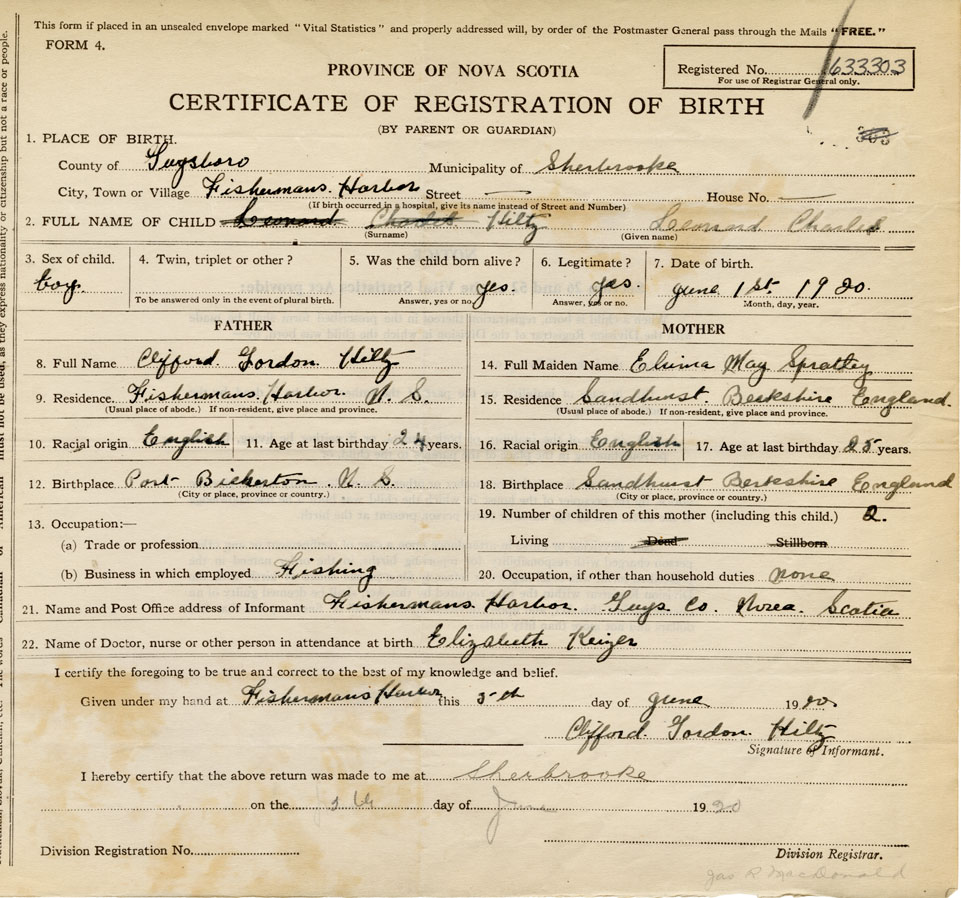 This form if placed in an unsealed envelope marked "Vital Statistics" and properly addressed will, by order of the Postmaster General pass through the Mails "FREE."
FORM 4.
Registered No. 633303
For use of Registrar General only.
PROVINCE OF NOVA SCOTIA
CERTIFICATE OF REGISTRATION OF BIRTH
(BY PARENT OR GUARDIAN)
303
1. PLACE OF BIRTH.
County of Guysboro Municipality of Sherbrooke
City, Town or Village Fishermans. Harbor Street House No.
(If birth occurred in a hospital, give its name instead of Street and Number)
2. FULL NAME OF CHILD Leonard Hiltz Leonard Charles
(Surname) (Given name)
3. Sex of child. 4. Twin, triplet or other? 5. Was the child born alive? 6. Legitimate? 7. Date of birth.
boy. yes. yes. june 1st. 1920.
To be answered only in the event of plural birth. Answer, yes or no. Answer, yes or no. Month, day, year.
FATHER MOTHER
8. Full Name Clifford. Gordon. Hiltz 14. Full Maiden Name May Sprattey
9. Residence. Fishermans. Harbor. N. S. 15. Residence Sandhurst. Berkshire England.
(Usual place of abode.) If non-resident, give place and province. (Usual place of abode.) If non-resident, give place and province.
10. Racial origin English 11. Age at last birthday 24 years. 16. Racial origin English 17. Age at last birthday 25 years.
12. Birthplace Port Bickerton. N. S. 18. Birthplace Sandhurst Berkshire England
(City or place, province or country.) (City or place, province or country.)
13. Occupation:— 19. Number of children of this mother (including this child.) 2.
(a) Trade or profession Living Dead Stillborn
(b) Business in which employed Fishing 20. Occupation, if other than household duties none
21. Name and Post Office address of Informant Fishermans. Harbor. Guys. Co. Nova. Scotia
22. Name of Doctor, nurse or other person in attendance at birth. Elizabeth Keizer
I certify the foregoing to be true and correct to the best of my knowledge and belief.
Given under my hand at Fishermans Harbor this 5th day of june 1920
Clifford. Gordon. Hiltz
Signature of Informant.
I hereby certify that the above return was made to me at Sherbrooke
on the day of June 1920
Division Registration No.
Division Registrar.
Jas R MacDonald